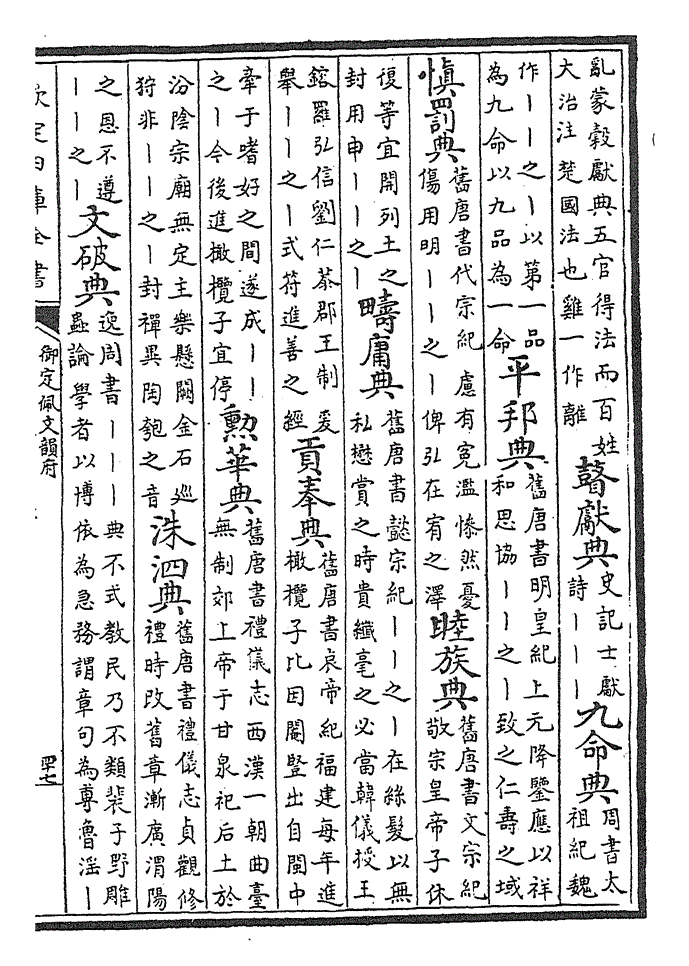 亂蒙穀獻典五官得法而百姓
大治注楚國法也雞一作離
瞽獻典
史記士獻
詩｜｜｜
九命典
周書太
祖紀魏
作｜｜之｜以第一品
為九命以九品為一命
平邦典
舊唐書明皇紀上元降鑒應以祥
和思協｜｜之｜致之仁壽之域
慎罰典
舊唐書代宗紀慮有寃濫慘然憂
傷用明｜｜之｜俾弘在宥之澤
睦族典
舊唐書文宗紀
敬宗皇帝子休
復等宜開列土之
封用申｜｜之｜
疇庸典
舊唐書懿宗紀｜｜之｜在絲髮以無
私懋賞之時貴纖毫之必當韓儀授王
鎔羅弘信劉仁恭郡王制爰
舉｜｜之｜式符進善之經
貢奉典
舊唐書哀帝紀福建每年進
橄欖子比因閹豎出自閩中
牽于嗜好之間遂成｜｜
之｜今後進橄欖子宜停
勲華典
舊唐書禮儀志西漢一朝曲臺
無制郊上帝于甘泉祀后土於
汾陰宗廟無定主樂懸闕金石廵
狩非｜｜之｜封禪異陶匏之音
洙泗典
舊唐書禮儀志貞觀修
禮時改舊章漸廣渭陽
之恩不遵
｜｜之｜
文破典
逸周書｜｜｜典不式教民乃不類裴子野雕
蟲論學者以博依為急務謂章句為専魯淫｜
欽定四庫全書
御定佩文韻府
四十七